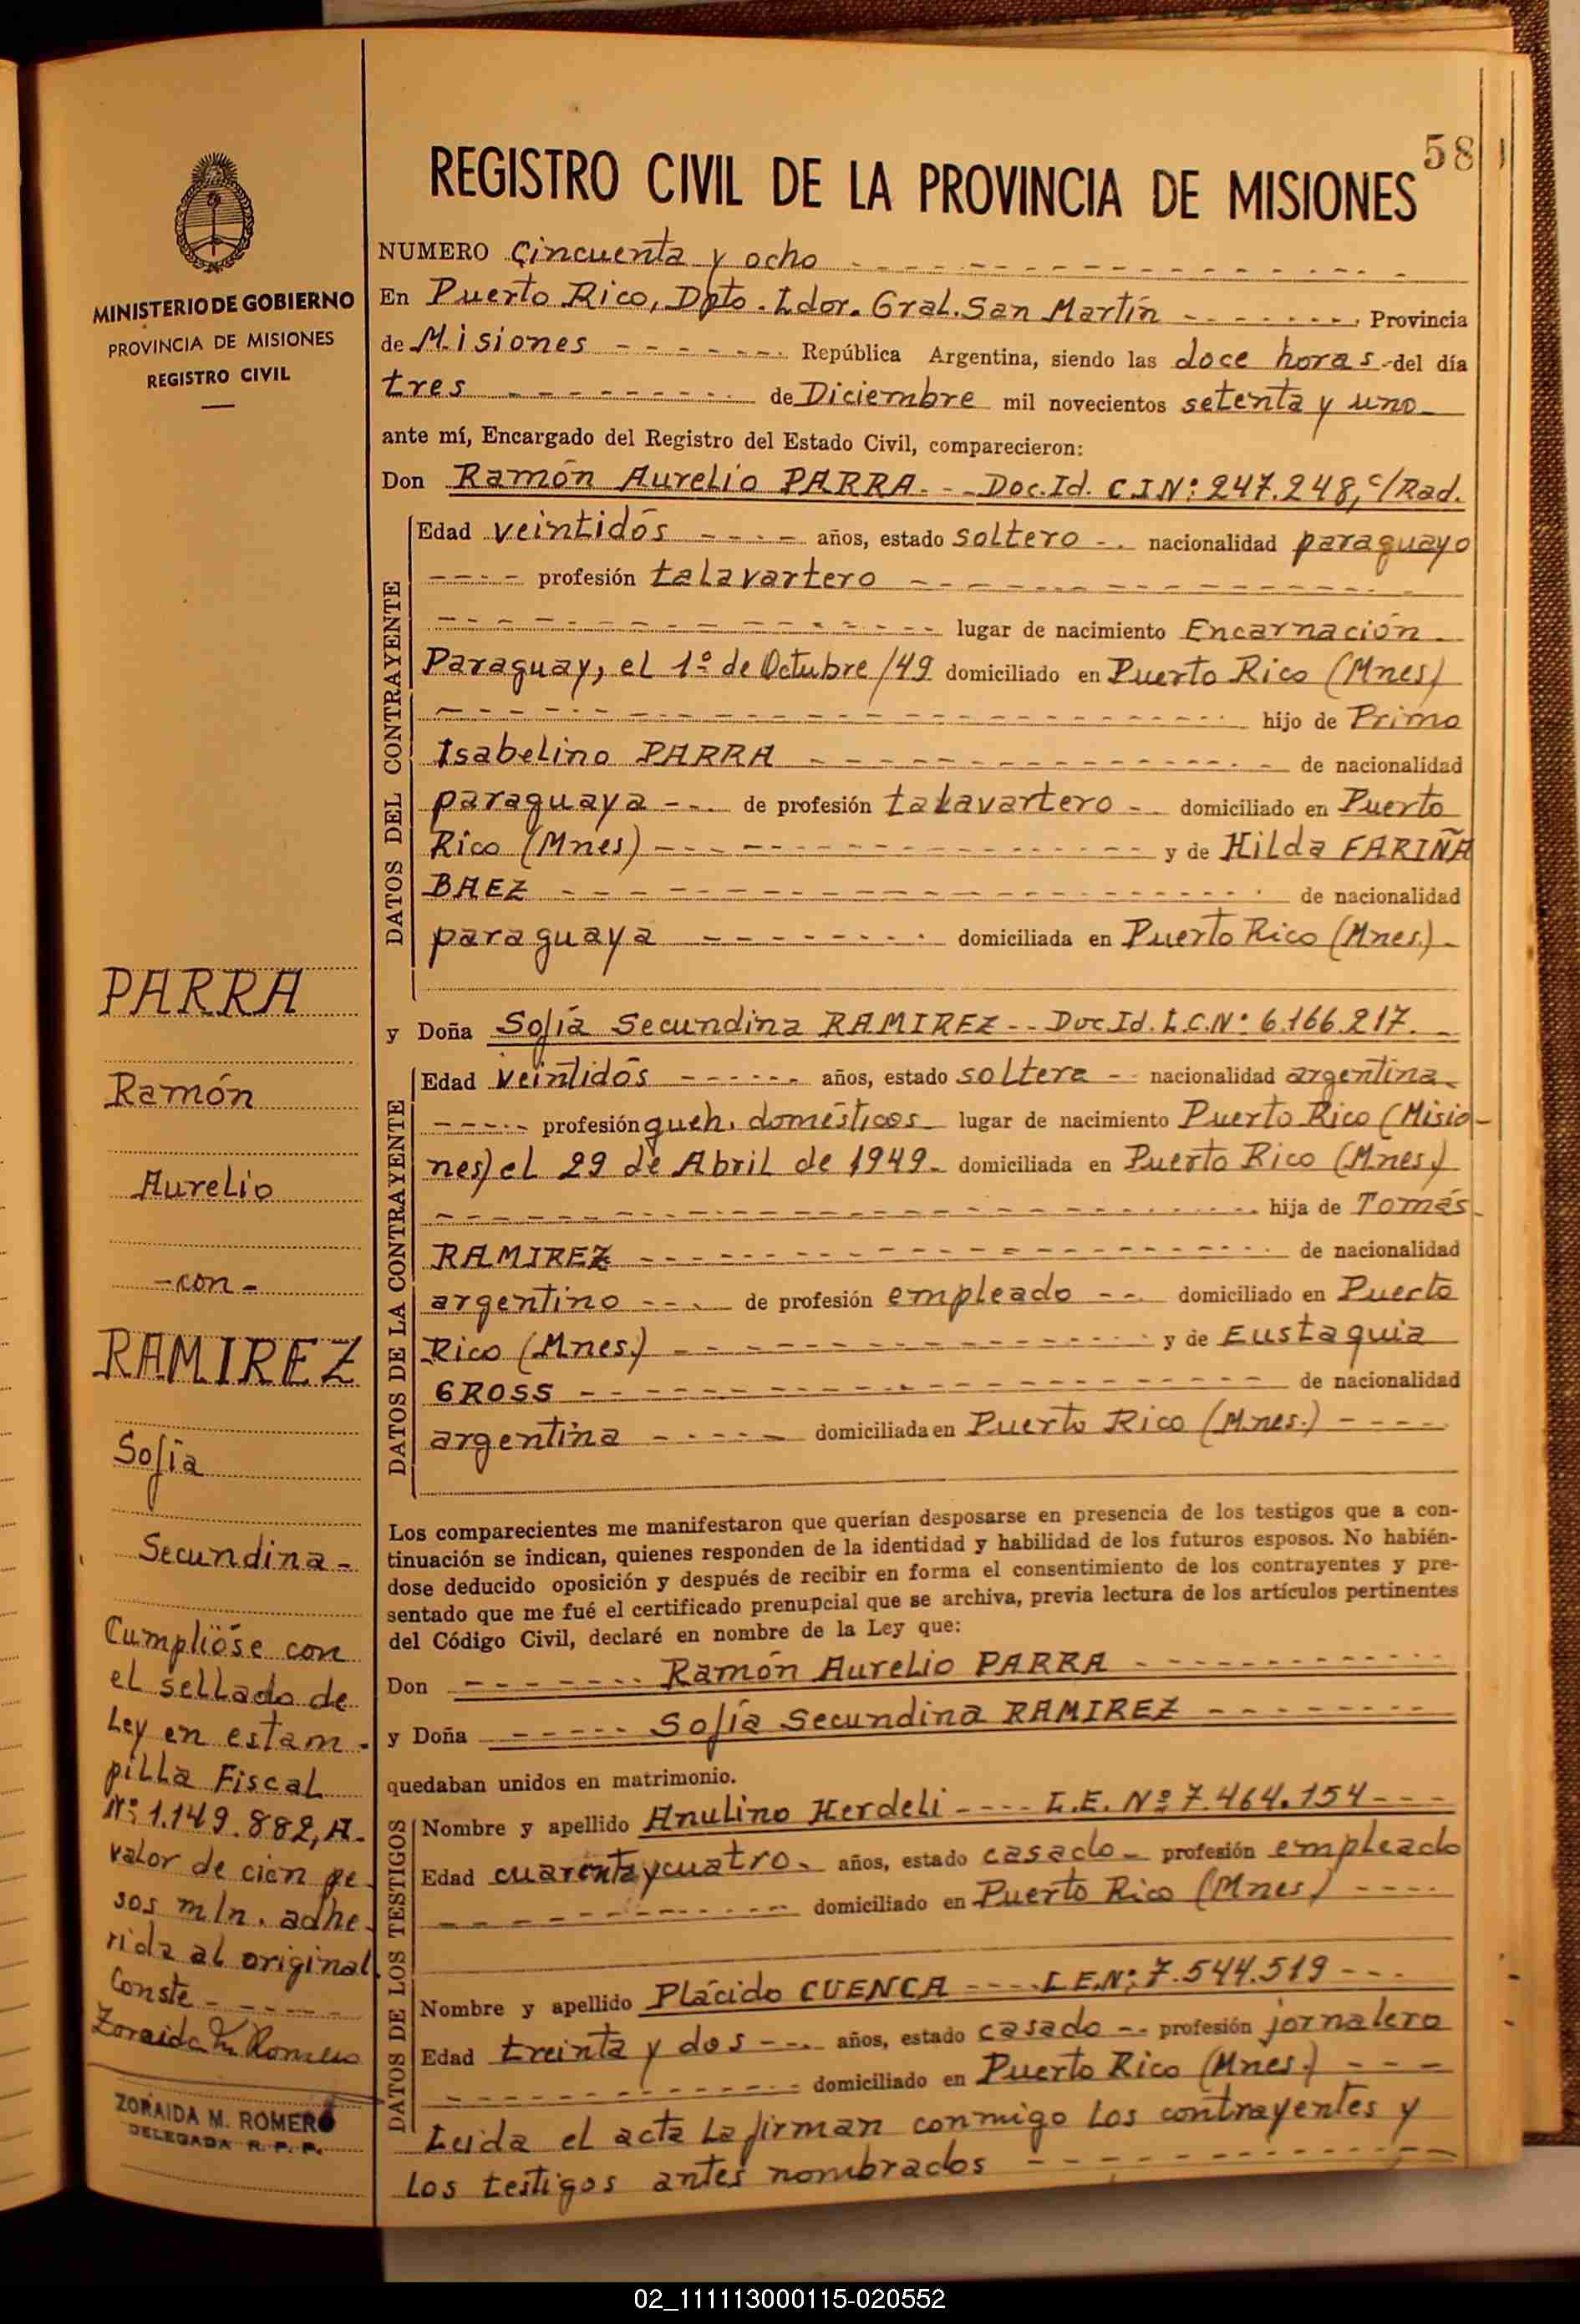 58
REGISTRO CIVIL DE LA PROVINCIA DE MISIONES
MINISTERIO DE GOBIERNO
PROVINCIA DE MISIONES
REGISTRO CIVIL
NUMERO Cincuenta y ocho
En Puerto Rico, Dpto. Ldor. Gral. San Martín Provincia
de Misiones República Argentina, siendo las doce horas del día
tres de Diciembre mil novecientos setenta y uno
ante mí, Encargado del Registro del Estado Civil, comparecieron:
Don Ramón Aurelio PARRA - Doc. Id. C.I Nº: 247.248, c/Rad.
DATOS DEL CONTRAYENTE
Edad veintidós años, estado soltero nacionalidad paraguayo
profesión talavartero
lugar de nacimiento Encarnación
Paraguay, el 1º de Octubre/49 domiciliado en Puerto Rico (Mnes)
hijo de Primo
Isabelino PARRA de nacionalidad
paraguaya de profesión talavartero domiciliado en Puerto
Rico (Mnes) y de Hilda FARIÑA
BAEZ de nacionalidad
paraguaya domiciliada en Puerto Rico (Mnes.)
y Doña Sofía Secundina RAMIREZ -- Doc Id. L.C.Nº 6.166.217.
DATOS DE LA CONTRAYENTE
Edad veintidós años, estado soltera nacionalidad argentina
profesión queh. domésticos lugar de nacimiento Puerto Rico (Misio-
nes) el 29 de Abril de 1949 domiciliada en Puerto Rico (Mnes.)
hija de Tomás
RAMIREZ de nacionalidad
argentino de profesión empleado domiciliado en Puerto
Rico (Mnes.) y de Eustaquia
GROSS de nacionalidad
argentina domiciliada en Puerto Rico (Mnes.)
Los comparecientes me manifestaron que querían desposarse en presencia de los testigos que a con-
tinuación se indican, quienes responden de la identidad y habilidad de los futuros esposos. No habién-
dose deducido oposición y después de recibir en forma el consentimiento de los contrayentes y pre-
sentado que me fué el certificado prenupcial que se archiva, previa lectura de los artículos pertinentes
del Código Civil, declaré en nombre de la Ley que:
Don Ramón Aurelio PARRA
y Doña Sofía Secundina RAMIREZ
quedaban unidos en matrimonio.
DATOS DE LOS TESTIGOS
Nombre y apellido Anulino Herdeli ---- L.E. Nº 7.464.154
Edad cuarenta y cuatro años, estado casado profesión empleado
domiciliado en Puerto Rico (Mnes)
Nombre y apellido Plácido CUENCA ---- L.E.Nº: 7.544.519
Edad treinta y dos años, estado casado profesión jornalero
domiciliado en Puerto Rico (Mnes.)
Leida el acta la firman conmigo los contrayentes y
los testigos antes nombrados
PARRA
Ramón
Aurelio
-con-
RAMIREZ
Sofía
Secundina
Cumplióse con
el sellado de
Ley en estam-
pilla Fiscal
Nº: 1.149.882, A-
valor de cien pe-
sos m/n. adhe-
rida al original
Conste
Zoraida M. Romero
ZORAIDA M. ROMERO
DELEGADA R. P. P.
02_111113000115-020552